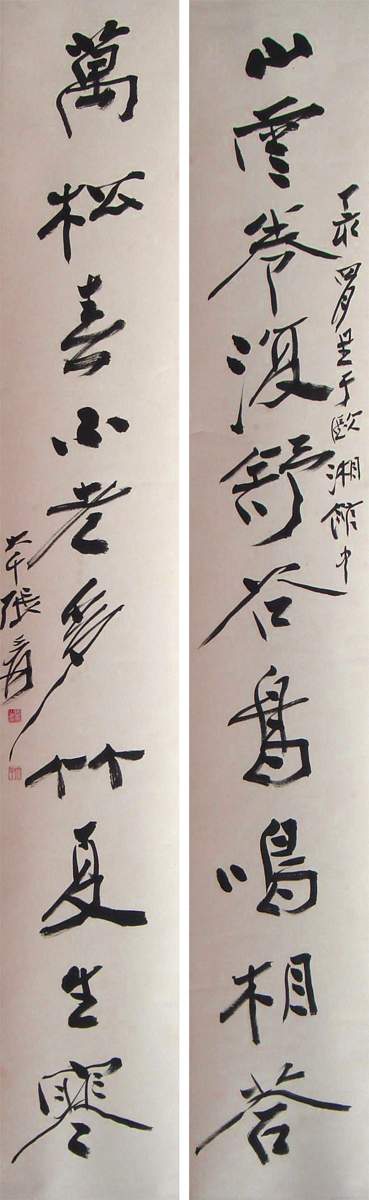 山雲卷復舒谷鳥鳴相答
丁亥四月書于歐湘館中
萬松春不老多竹夏生寒
大千張爰